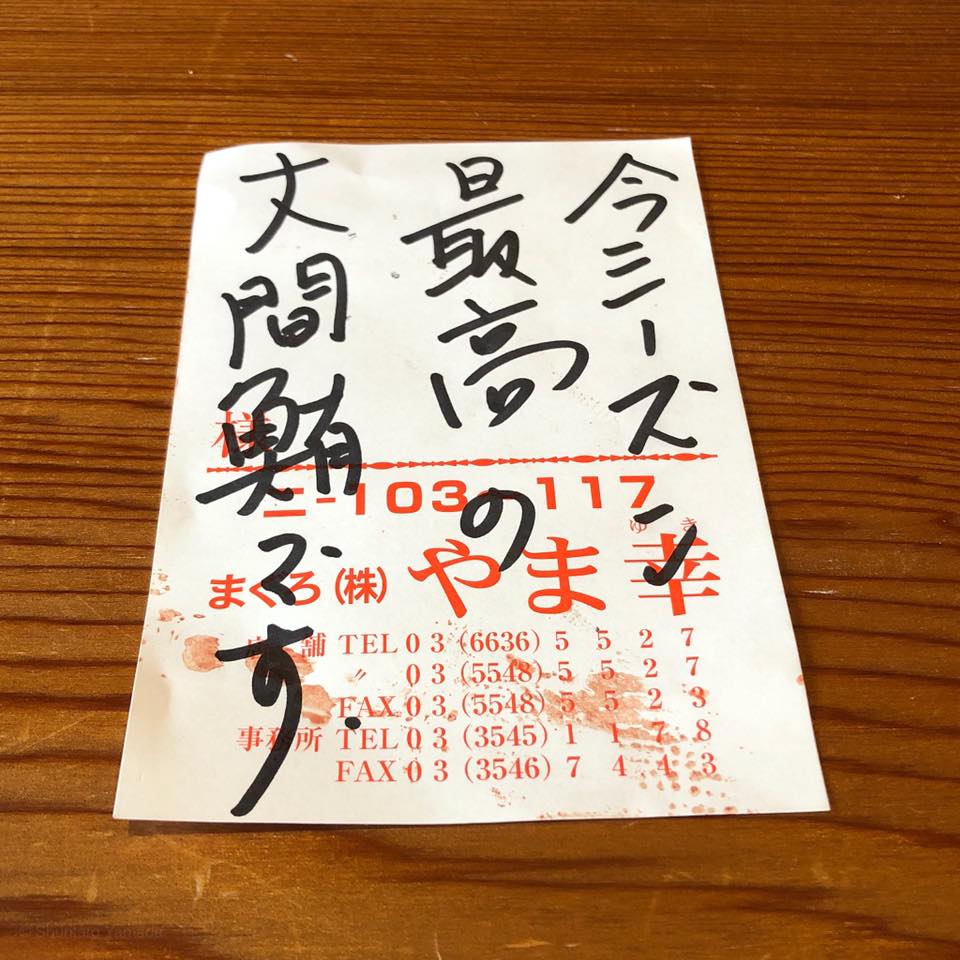 今シーズン
最高の
大間鮪です.
様
ニ-103~117
ゆき
まぐろ(株)やま幸
店舗 TEL03(6636)5527
〃 03(5548)5527
FAX03(5548)5523
事務所 TEL03(3545)1178
FAX03(3546)7443
© Shuntaro Yamada